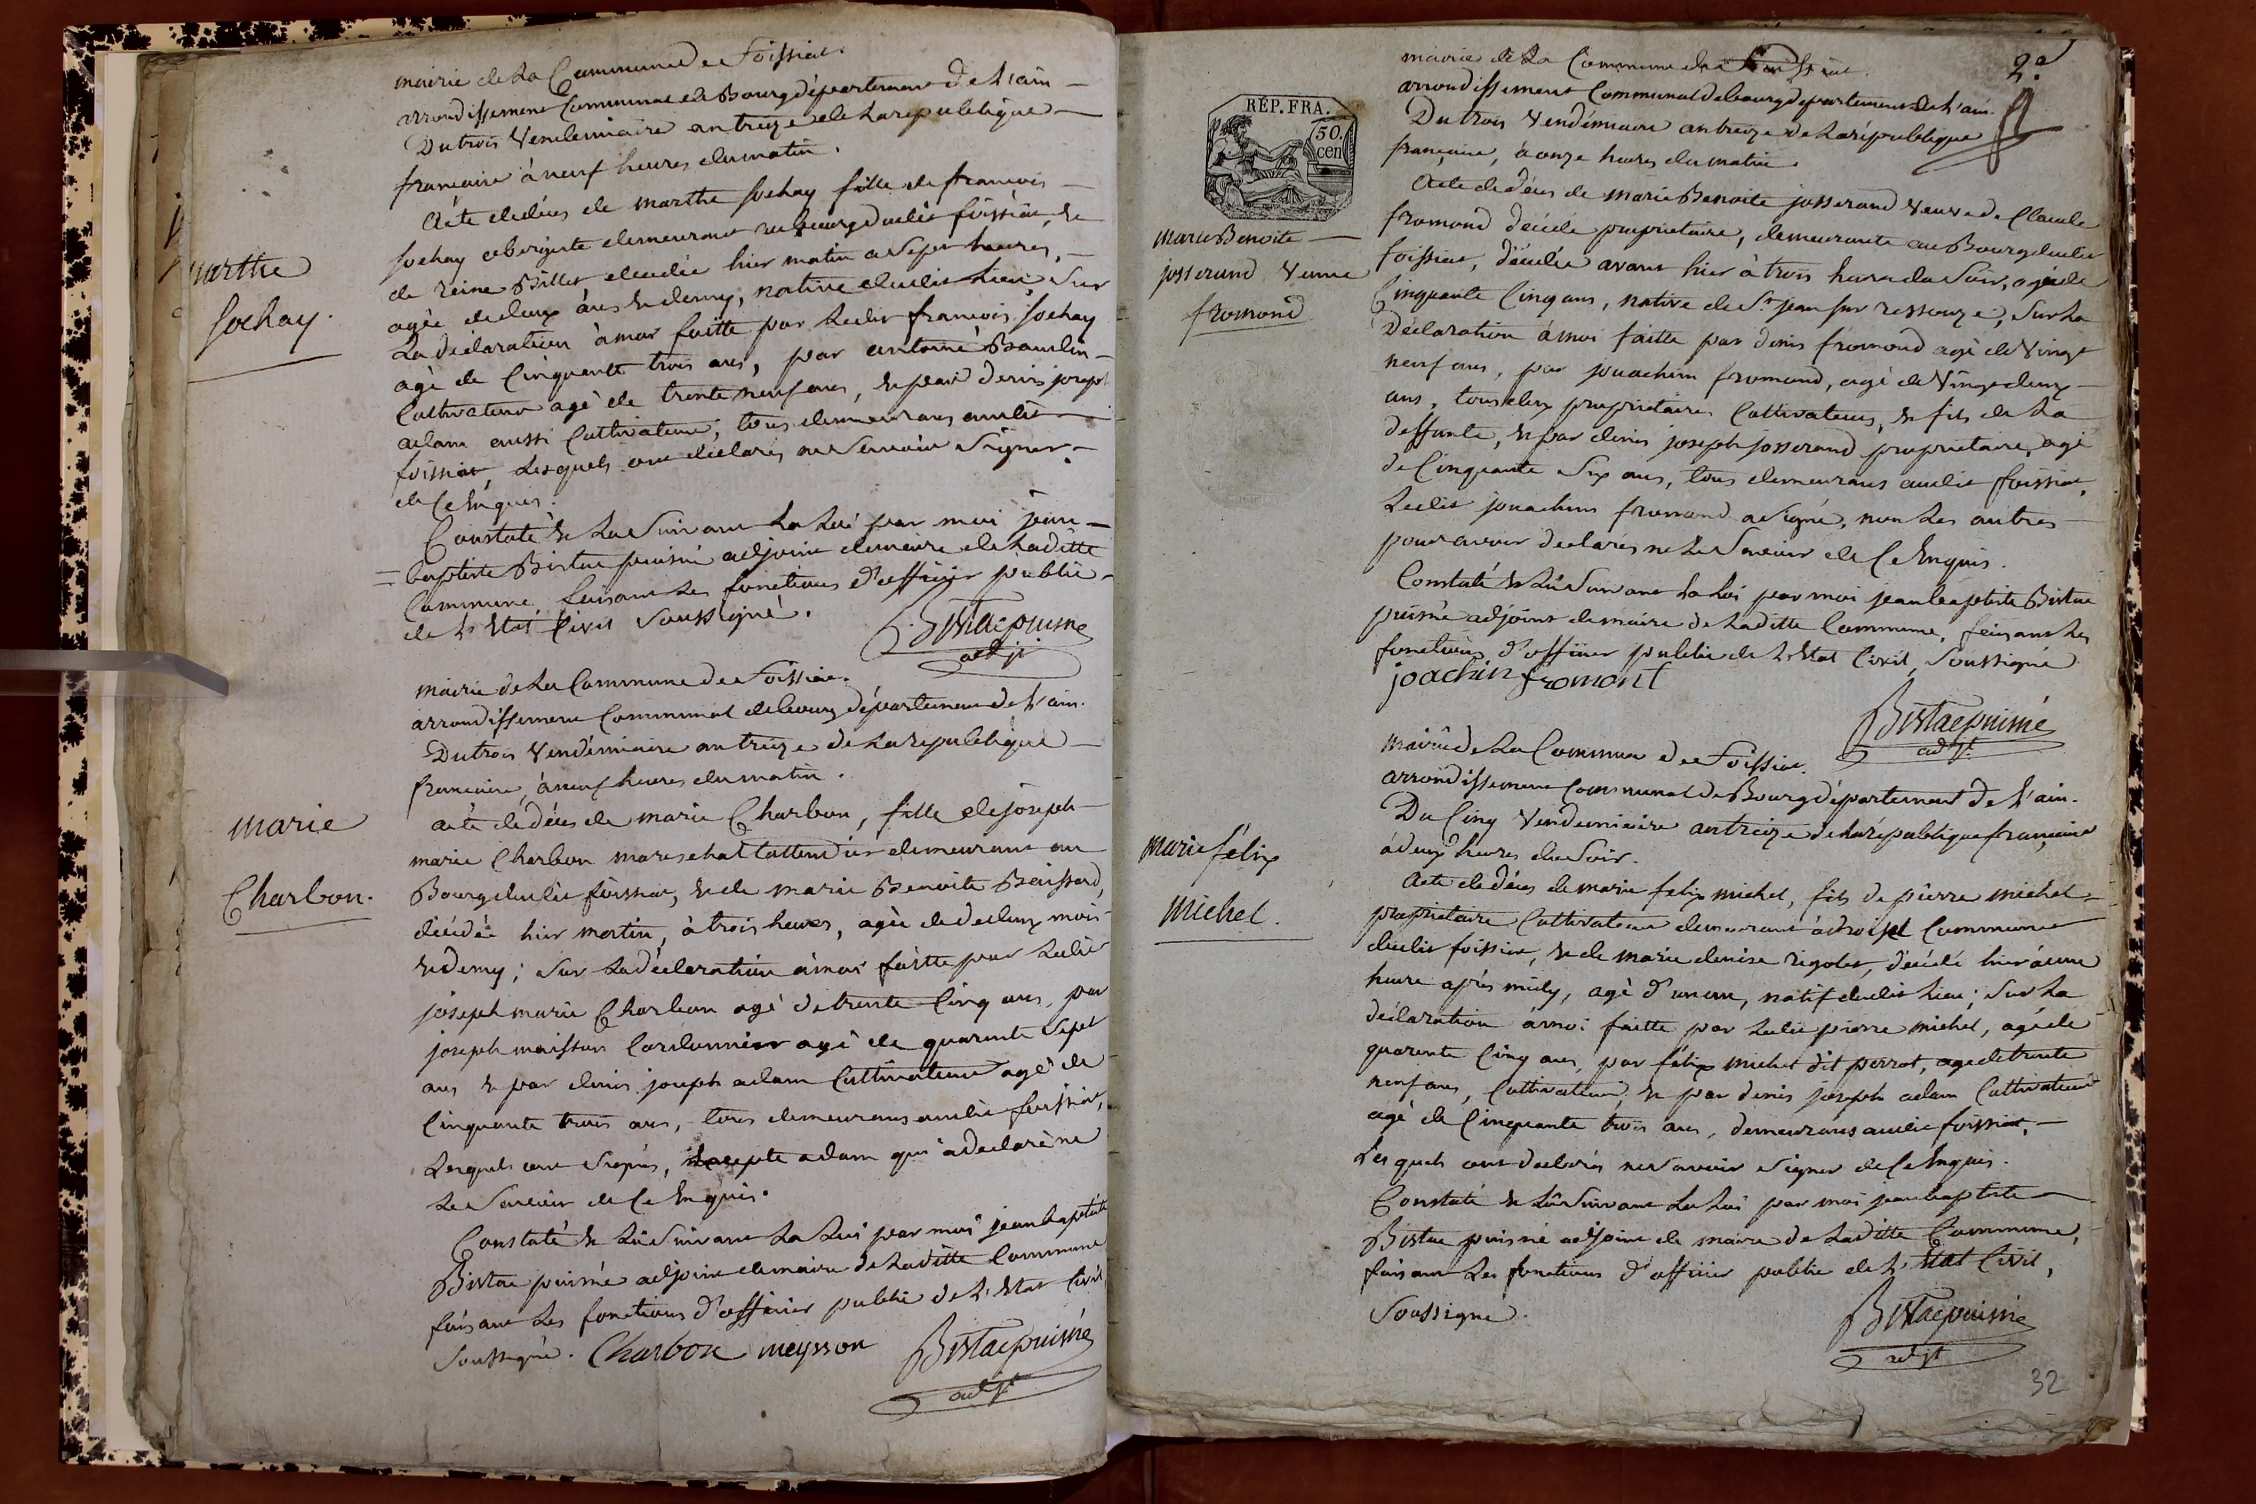 mairie de La Commune de Foissiat
arrondissement Communal de Bourg département de L'ain
Du trois Vendemiaire an treize de La republique
francaise à neuf heures du matin.
Acte de déces de marthe sochay fille de francois
sochay aubergiste demeurant au bourg dudit foissiat, et
de reine Billet, decedée hier matin a sept heures,
agée de deux ans et demy, native dudit Lieu, Sur
La déclaration à moi faitte par Ledit francois Sochay
agé de Cinquante trois ans, par antoine
Cultivateur agé de trente neuf ans, et par denis joseph
adam aussi Cultivateur, tous demeurans audit
foissiat, Lesquels ont declarés ne Scavoir Signer
de Ce Enquis.
Constaté et Lu Suivant La Loi par moi jean
baptiste Bistac puisné adjoint de maire de Laditte
Commune, faisant Les fonctions d'officier public
de L'Etat Civil Soussigné.
Bistac puisné
adjt
marthe
Sochay.
mairie de La Commune de Foissiat.
arrondissement Communal de bourg département de L'ain.
Du trois Vendémiaire an treize de La republique
francaise, à neuf heures du matin.
acte de déces de marie Charbon, fille de joseph
marie Charbon mareschal demeurant au
Bourg dudit foissiat, et de marie Benoite
décédée hier matin, à trois heures, agée de deux mois
et demy; Sur La déclaration à moi faitte par Ledit
joseph marie Charbon agé de trente Cinq ans, par
joseph maisson Cordonnier agé de quarante Sept
ans et par denis joseph adam Cultivateur agé de
Cinquante trois ans, tous demeurans audit foissiat,
Lesquels ont Signés, adam qui a declaré ne
Le Scavoir de Ce Enquis.
Constaté et Lu Suivant La Loi par moi jean baptiste
Bistac puisné adjoint de maire de Laditte Commune
faisant Les fonctions d'officier public de L'Etat Civil
Soussigné. Charbon meysson Bistac puisné
adjt
marie
Charbon.
2e
mairie de La Commune de Foissiat.
arrondissement Communal de bourg département de L'ain.
Du trois Vendémiaire an treize de La république
française, à onze heures du matin.
Acte de déces de marie Benoite josserand Veuve de Claude
fromond décédé proprietaire, demeurante au Bourg dudit
foissiat, décédée avant hier à trois heures du Soir, agée de
Cinquante Cinq ans, native de St jean sur ressouze, Sur La
Déclaration à moi faitte par denis fromond agé de Vingt
neuf ans, par jouachim fromond, agé de Vingt deux
ans, tous deux proprietaires Cultivateurs, et fils de La
deffunte, et par denis joseph josserand proprietaire, agé
de Cinquante Six ans, tous demeurans audit foissiat,
Ledit jouachim fromond a Signé, non Les autres
pour avoir declarés ne Le Scavoir de Ce Enquis.
Constaté et Lu Suivant La Loi par moi jean baptiste Bistac
puisné adjoint de maire de Laditte Commune, faisant Les
fonctions d'officier public de L'Etat Civil, Soussigné
joachin fromont
Bistac puisné
adjt
RÉP. FRA.
50.
cen
marie Benoite
josserand Veuve
fromond
mairie de La Commune de Foissiat.
arrondissement Communal de Bourg département de L'ain.
Du Cinq Vendemiaire an treize de La république française
à deux heures du Soir.
Acte de déces de marie felix michel, fils de pierre michel
proprietaire Cultivateur demeurant à Commune
dudit foissiat, et de marie denise rigolet, décédé hier à une
heure après midy, agé d'un an, natif dudit Lieu; Sur La
déclaration à moi faitte par Ledit pierre michel, agé de
quarente Cinq ans, par félix michel dit perrot, agé de trente
neuf ans, Cultivateur, et par denis joseph adam Cultivateur
agé de Cinquante trois ans, demeurans audit foissiat,
Les quels ont declarés ne Scavoir Signer de Ce Enquis.
Constaté et Lu Suivant La Loi par moi jean baptiste
Bistac puisné adjoint de maire de Laditte Commune,
faisant Les fonctions d'officier public de L'Etat Civil,
Soussigné.
Bistac puisné
adjt
marie félix
michel.
32